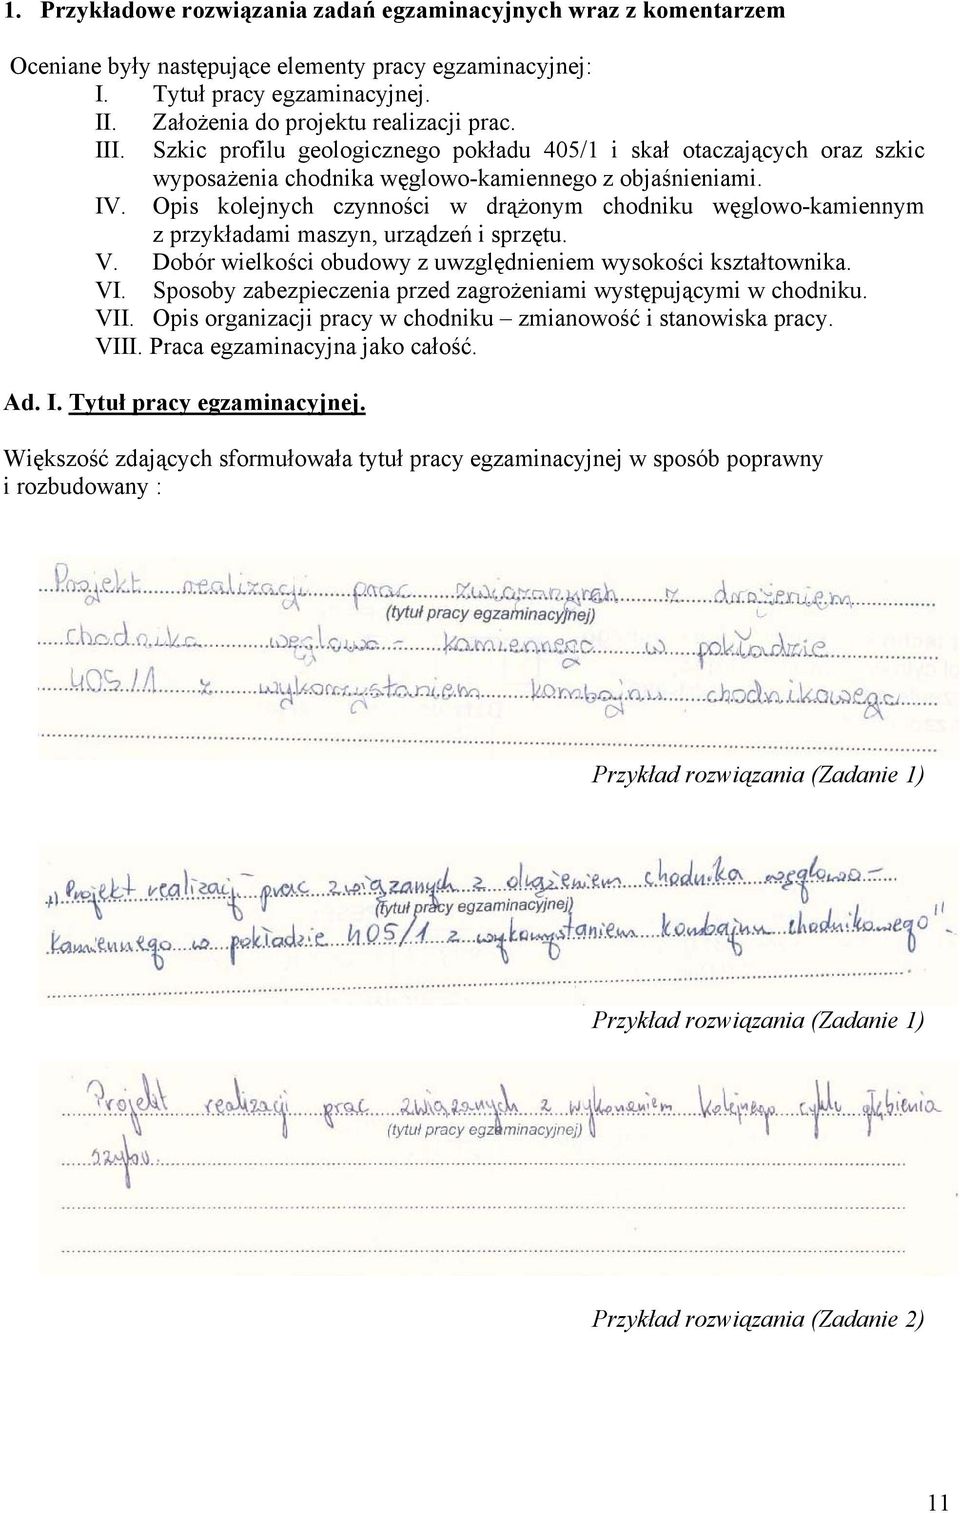 1. Przykładowe rozwiązania zadań egzaminacyjnych wraz z komentarzem
Oceniane były następujące elementy pracy egzaminacyjnej:
I. Tytuł pracy egzaminacyjnej.
II. Założenia do projektu realizacji prac.
III. Szkic profilu geologicznego pokładu 405/1 i skał otaczających oraz szkic
wyposażenia chodnika węglowo-kamiennego z objaśnieniami.
IV. Opis kolejnych czynności w drążonym chodniku węglowo-kamiennym
z przykładami maszyn, urządzeń i sprzętu.
V. Dobór wielkości obudowy z uwzględnieniem wysokości kształtownika.
VI. Sposoby zabezpieczenia przed zagrożeniami występującymi w chodniku.
VII. Opis organizacji pracy w chodniku – zmianowość i stanowiska pracy.
VIII. Praca egzaminacyjna jako całość.
Ad. I. Tytuł pracy egzaminacyjnej.
Większość zdających sformułowała tytuł pracy egzaminacyjnej w sposób poprawny
i rozbudowany :
Projekt realizacji prac związanych z drążeniem
(tytuł pracy egzaminacyjnej)
chodnika węglowo - kamiennego w pokładzie
405/1 z wykorzystaniem kombajnu chodnikowego
Przykład rozwiązania (Zadanie 1)
„Projekt realizacji prac związanych z drążeniem chodnika węglowo-
(tytuł pracy egzaminacyjnej)
kamiennego w pokładzie 405/1 z wykorzystaniem kombajnu chodnikowego".
Przykład rozwiązania (Zadanie 1)
Projekt realizacji prac związanych z wykonaniem kolejnego cyklu głębienia
(tytuł pracy egzaminacyjnej)
szybu.
Przykład rozwiązania (Zadanie 2)
11